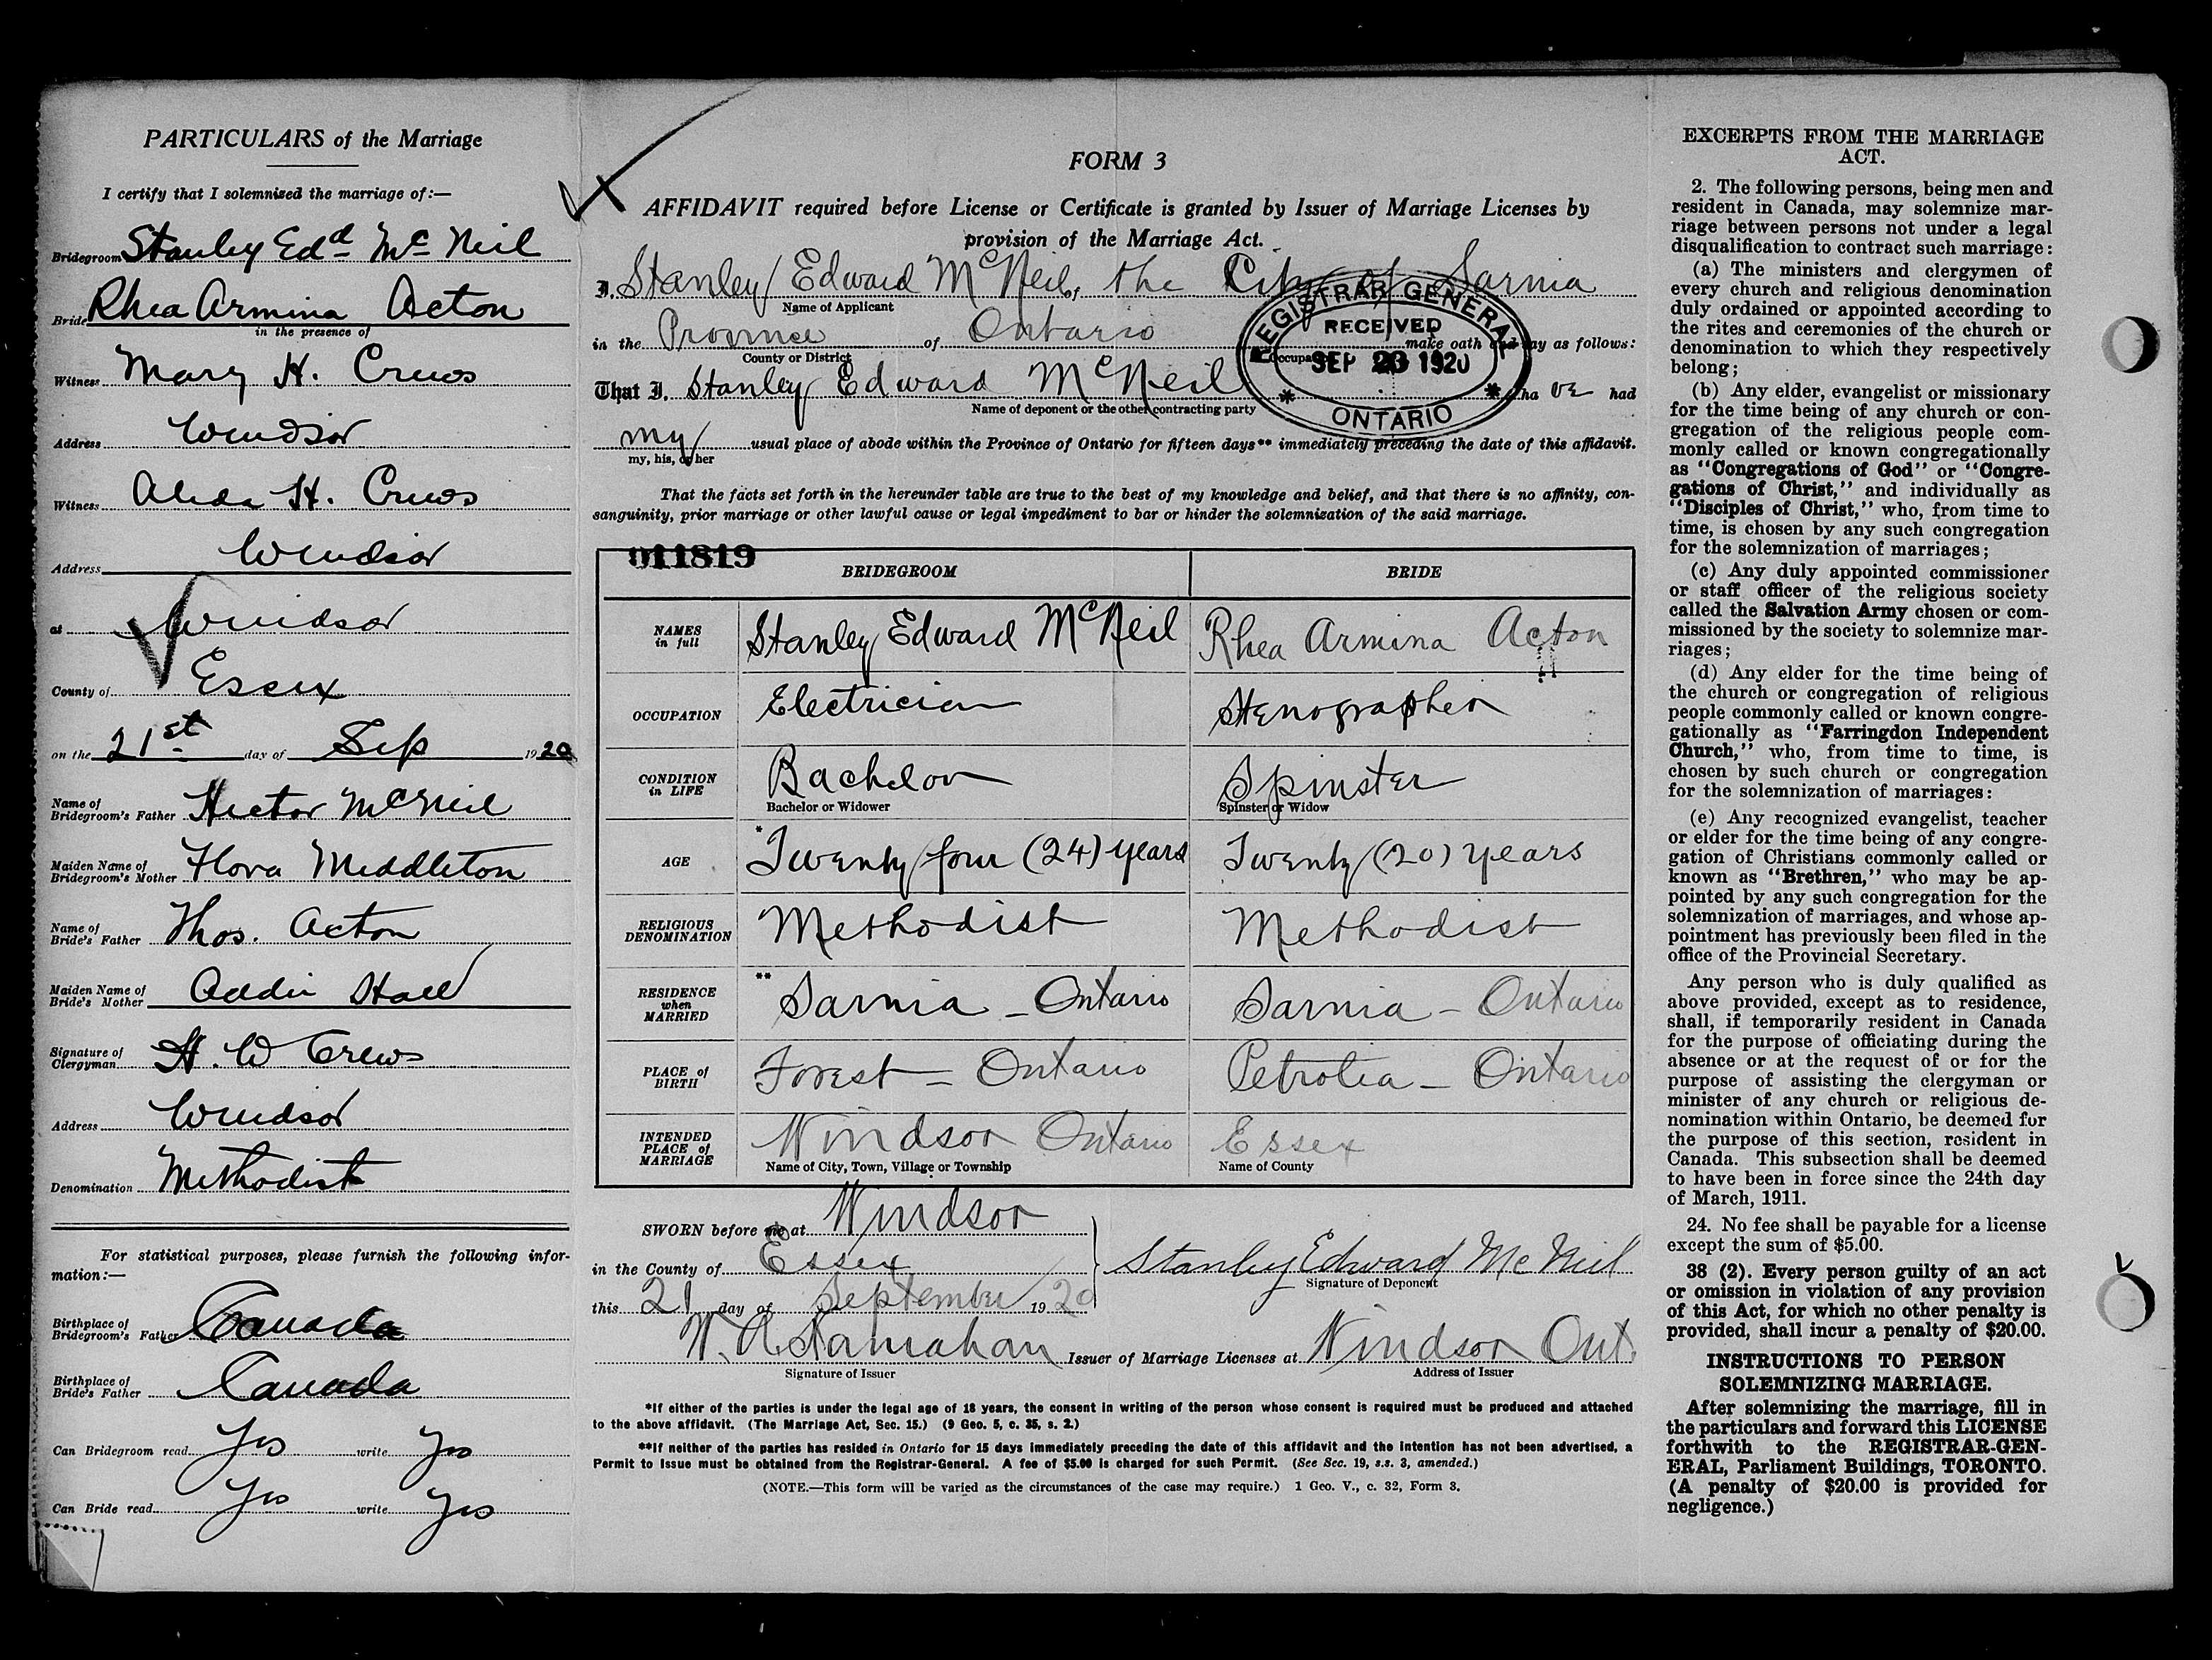 PARTICULARS of the Marriage
I certify that I solemnized the marriage of:—
Bridegroom Stanley Edd Mc Neil
Bride Rhea Armina Acton
in the presence of
Witness Mary H. Crews
Address Windsor
Witness Alida H. Crews
Address Windsor
at Windsor
County of Essex
on the 21st day of Sep 1920
Name of Bridegroom's Father Hector McNeil
Maiden Name of Bridegroom's Mother Flora Middleton
Name of Bride's Father Thos. Acton
Maiden Name of Bride's Mother Addie Hall
Signature of Clergyman H. W Crews
Address Windsor
Denomination Methodist
For statistical purposes, please furnish the following infor-
mation:—
Birthplace of Bridegroom's Father Canada
Birthplace of Bride's Father Canada
Can Bridegroom read Yes write Yes
Can Bride read Yes write Yes
FORM 3
AFFIDAVIT required before License or Certificate is granted by Issuer of Marriage Licenses by
provision of the Marriage Act.
I, Stanley Edward McNeil, of the City of Sarnia
Name of Applicant
in the Province of Ontario make oath and say as follows:
County or District Occupa
That I, Stanley Edward McNeil ha ve had
Name of deponent or the other contracting party
my usual place of abode within the Province of Ontario for fifteen days** immediately preceding the date of this affidavit.
my, his, or her
REGISTRAR GENERAL
RECEIVED
SEP 23 1920
* ONTARIO *
That the facts set forth in the hereunder table are true to the best of my knowledge and belief, and that there is no affinity, con-
sanguinity, prior marriage or other lawful cause or legal impediment to bar or hinder the solemnization of the said marriage.
011819
BRIDEGROOM BRIDE
NAMES in full Stanley Edward McNeil Rhea Armina Acton
OCCUPATION Electrician Stenographer
CONDITION in LIFE Bachelor Spinster
Bachelor or Widower Spinster or Widow
AGE *Twenty four (24) years Twenty (20) years
RELIGIOUS DENOMINATION Methodist Methodist
RESIDENCE when MARRIED **Sarnia - Ontario Sarnia - Ontario
PLACE of BIRTH Forest = Ontario Petrolia - Ontario
INTENDED PLACE of MARRIAGE Windsor Ontario Essex
Name of City, Town, Village or Township Name of County
SWORN before me at Windsor
in the County of Essex Stanley Edward McNeil
Signature of Deponent
this 21 day of September 1920
W. A. Issuer of Marriage Licenses at Windsor Ont.
Signature of Issuer Address of Issuer
*If either of the parties is under the legal age of 18 years, the consent in writing of the person whose consent is required must be produced and attached
to the above affidavit. (The Marriage Act, Sec. 15.) (9 Geo. 5, c. 35, s. 2.)
**If neither of the parties has resided in Ontario for 15 days immediately preceding the date of this affidavit and the intention has not been advertised, a
Permit to Issue must be obtained from the Registrar-General. A fee of $5.00 is charged for such Permit. (See Sec. 19, s.s. 3, amended.)
(NOTE.—This form will be varied as the circumstances of the case may require.) 1 Geo. V., c. 32, Form 3.
EXCERPTS FROM THE MARRIAGE
ACT.
2. The following persons, being men and
resident in Canada, may solemnize mar-
riage between persons not under a legal
disqualification to contract such marriage:
(a) The ministers and clergymen of
every church and religious denomination
duly ordained or appointed according to
the rites and ceremonies of the church or
denomination to which they respectively
belong;
(b) Any elder, evangelist or missionary
for the time being of any church or con-
gregation of the religious people com-
monly called or known congregationally
as "Congregations of God" or "Congre-
gations of Christ," and individually as
"Disciples of Christ," who, from time to
time, is chosen by any such congregation
for the solemnization of marriages;
(c) Any duly appointed commissioner
or staff officer of the religious society
called the Salvation Army chosen or com-
missioned by the society to solemnize mar-
riages;
(d) Any elder for the time being of
the church or congregation of religious
people commonly called or known congre-
gationally as "Farringdon Independent
Church," who, from time to time, is
chosen by such church or congregation
for the solemnization of marriages:
(e) Any recognized evangelist, teacher
or elder for the time being of any congre-
gation of Christians commonly called or
known as "Brethren," who may be ap-
pointed by any such congregation for the
solemnization of marriages, and whose ap-
pointment has previously been filed in the
office of the Provincial Secretary.
Any person who is duly qualified as
above provided, except as to residence,
shall, if temporarily resident in Canada
for the purpose of officiating during the
absence or at the request of or for the
purpose of assisting the clergyman or
minister of any church or religious de-
nomination within Ontario, be deemed for
the purpose of this section, resident in
Canada. This subsection shall be deemed
to have been in force since the 24th day
of March, 1911.
24. No fee shall be payable for a license
except the sum of $5.00.
38 (2). Every person guilty of an act
or omission in violation of any provision
of this Act, for which no other penalty is
provided, shall incur a penalty of $20.00.
INSTRUCTIONS TO PERSON
SOLEMNIZING MARRIAGE.
After solemnizing the marriage, fill in
the particulars and forward this LICENSE
forthwith to the REGISTRAR-GEN-
ERAL, Parliament Buildings, TORONTO.
(A penalty of $20.00 is provided for
negligence.)